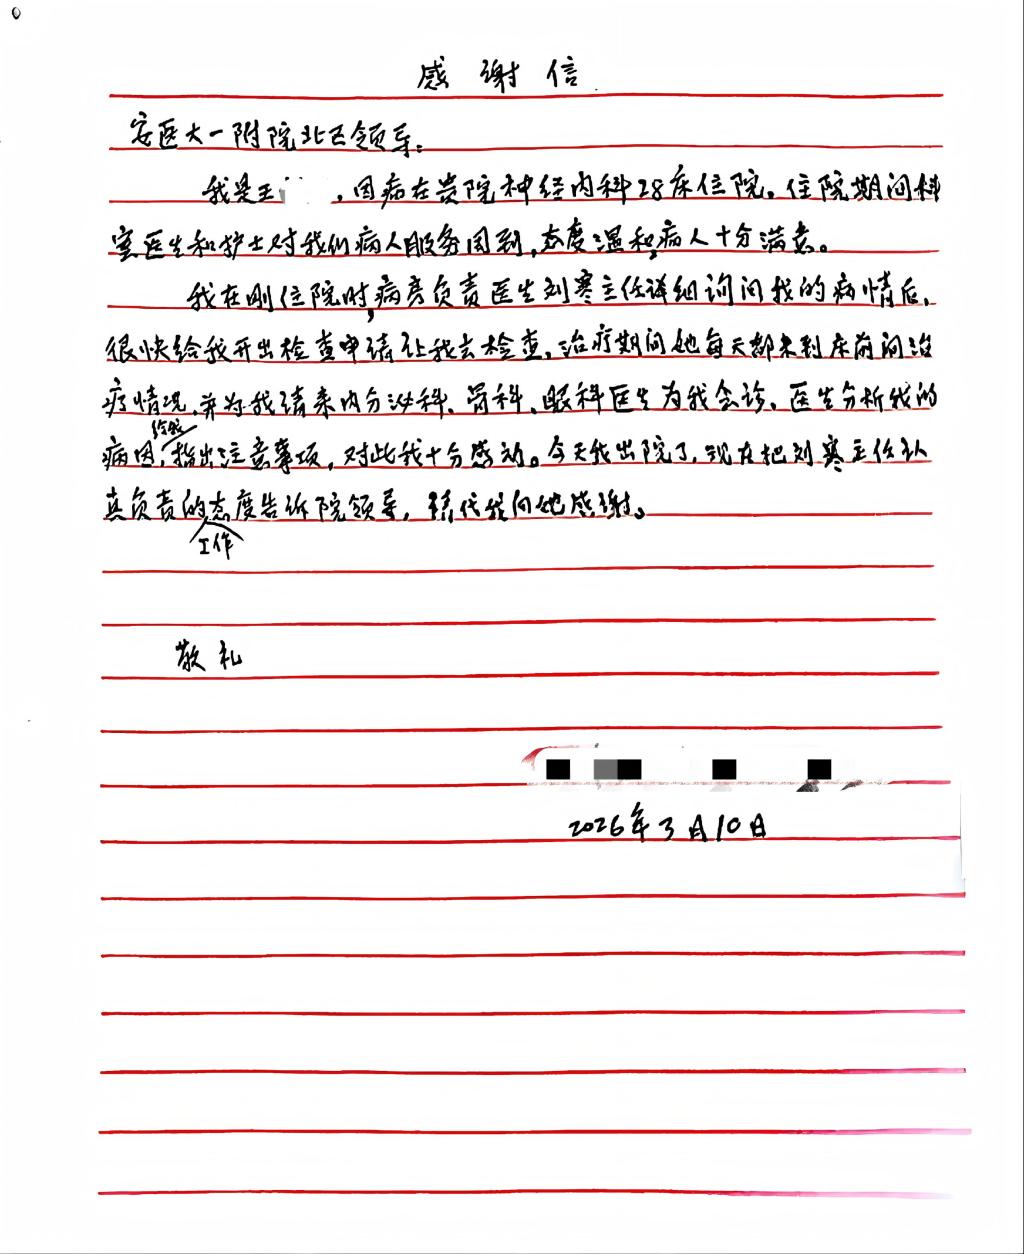 感谢信
安医大一附院北区领导:
我是王 ,因病在贵院神经内科28床住院。住院期间科
室医生和护士对我们病人服务周到,态度温和,病人十分满意。
我在刚住院时,病房负责医生刘寒主任详细询问我的病情后,
很快给我开出检查申请让我去检查,治疗期间她每天都来到床前问治
疗情况,并为我请来内分泌科、骨科、眼科医生为我会诊、医生分析我的
给我
病因,指出注意事项,对此我十分感动。今天我出院了,现在把刘寒主任认
真负责的态度告诉院领导,请代我向她感谢。
工作
敬礼
2026年3月10日